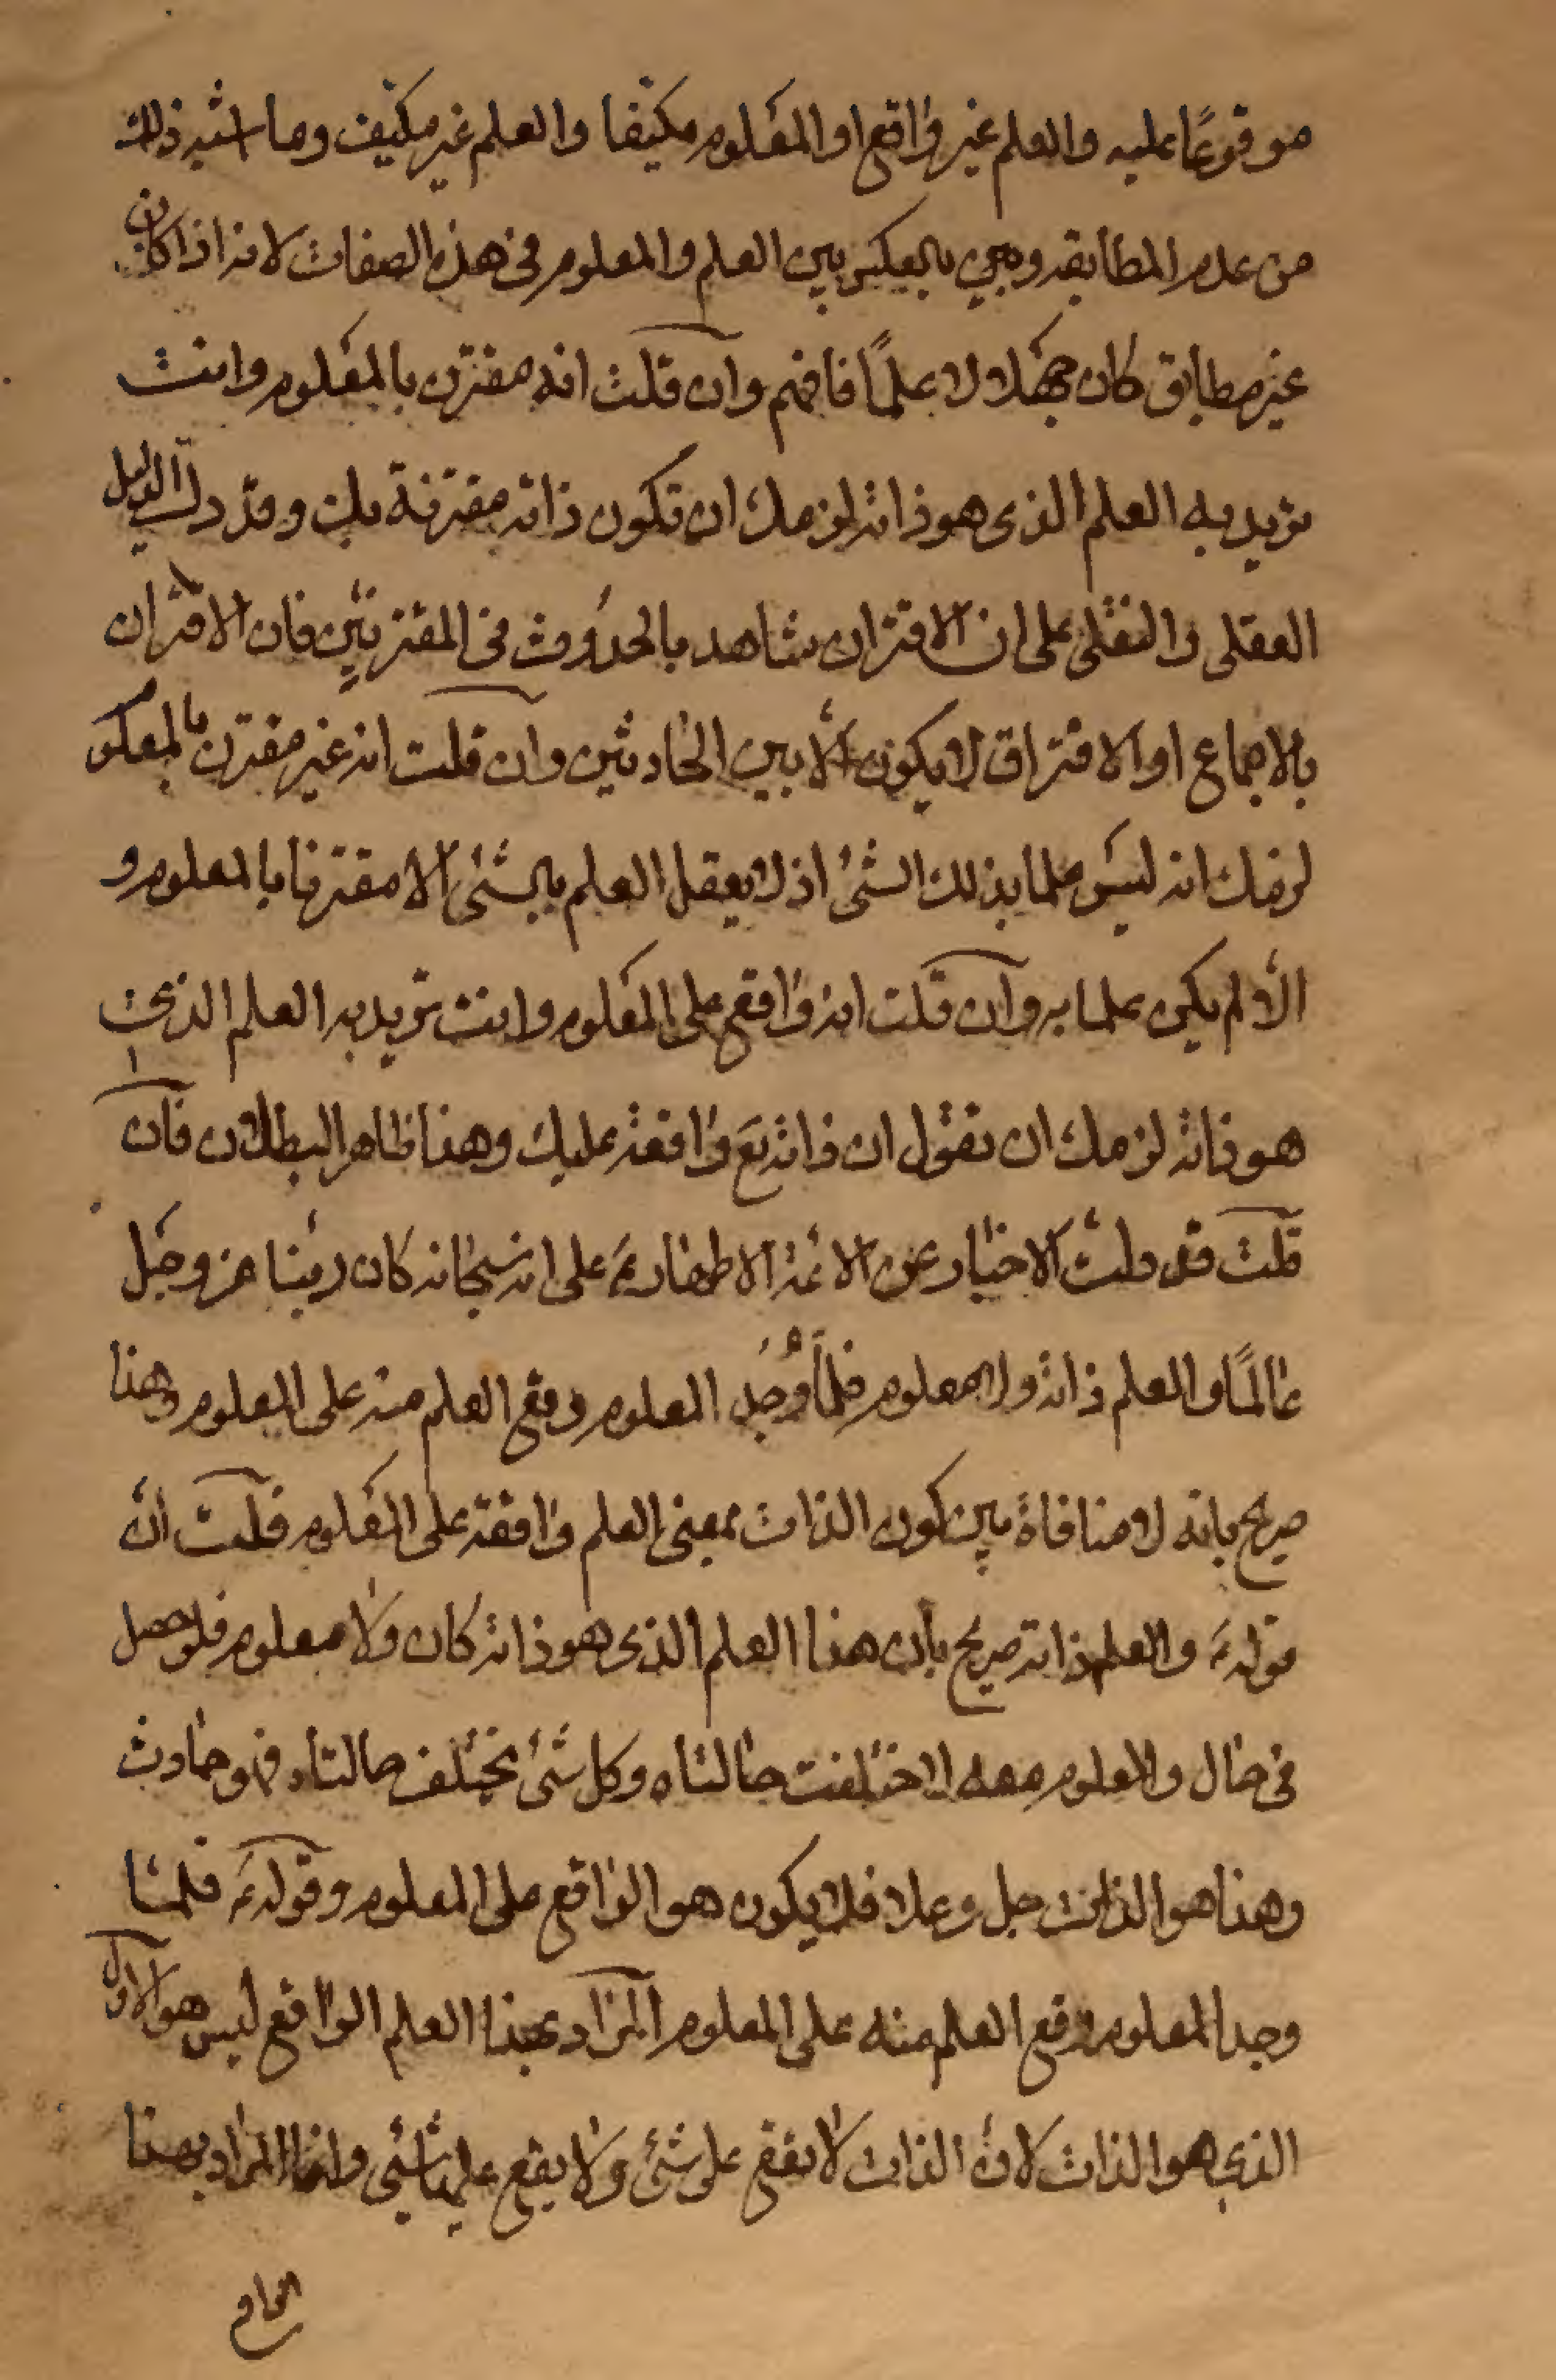 موقوعًا عليه والعلم غير واقع او المعلوم مكيّفا والعلم غير مكيّف وما اشبه ذلك
من عدم المطابقه وهي بالعكس بين العلم والمعلوم في هذه الصفات لانه اذا كان
غير مطابق كان جهلا لا علمًا فافهم وان قلت انه مقترن بالمعلوم وانت
تريد به العلم الذى هو ذاته لزمك ان تكون ذاته مقترنة بك وقد دل الدليل
العقلى والنقلى على ان الاقتران شاهد بالحدوث فى المقترنين فان الاقتران
بالاجماع او الافتراق لا يكون الّا بين الحادثين وان قلت انه غير مقترن بالمعلو
لزمك انه ليس علما بذلك الشئ اذ لا يعقل العلم بالشئ الا مقترنا بالمعلوم و
الّا لم يكن علما به وان قلت انه واقع على المعلوم وانت تريد به العلم الذى
هو ذاته لزمك ان تقول ان ذاته تع واقعة عليك وهذا ظاهر البطلان فان
قلت قد دلت الاخبار عن الائمة الاطهار ع على انه سبحانه كان ربنا عز وجل
عالمًا والعلم ذاته ولا معلوم فلما وُجد المعلوم وقع العلم منه على المعلوم وهذا
صريح بانه لا منافاة بين كون الذات بمعنى العلم واقعة على المعلوم قلت ان
قوله ع والعلم ذاته صريح بان هذا العلم الذى هو ذاته كان ولا معلوم فلو حصل
فى حال والمعلوم معه لاختلفت حالتاه وكل شئ تختلف حالتاه فهو حادث
وهذا هو الذات جل وعلا فلا يكون هو الواقع على المعلوم وقوله ع فلما
وجد المعلوم وقع العلم منه على المعلوم المراد بهذا العلم الواقع ليس هو الاول
الذى هو الذات لان الذات لا تقع على شئ ولا يقع عليها شئ وانما المراد بهذا